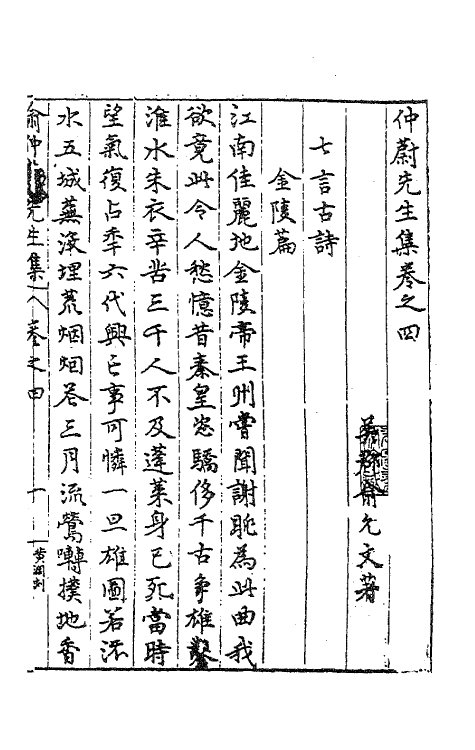 仲蔚先生集卷之四
吳郡俞允文著
七言古詩
金陵篇
江南佳麗地金陵帝王州嘗聞謝朓為此曲我
欲竟此令人愁憶昔秦皇恣驕侈千古爭雄鑿
淮水朱衣辛苦三千人不及蓬萊身已死當時
望氣復占年六代興亡事可憐一旦雄圖若流
水五城蕪沒埋荒烟烟花三月流鶯囀撲地香
俞仲蔚先生集 卷之四 一 黃周刻